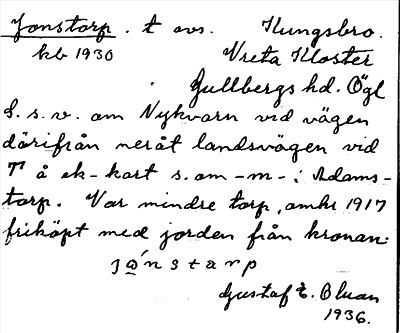 Jonstorp. t avs. Kungsbro.
kb 1930 Vreta Kloster
Gullbergs hd. Ögl
S. s. v. om Nykvarn vid vägen
därifrån neråt landsvägen vid
T å ek-kart s. om -m- i Adams-
torp. Var mindre torp, omkr 1917
friköpt med jorden från kronan.
jo̱ństarp
Gustaf E. Bluan
1936.